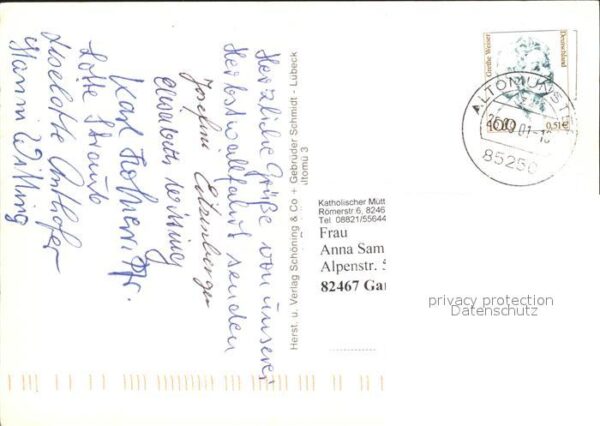 Herzliche Grüße von unserer
Herbstwallfahrt senden
Josefine
Elisabeth
Karl
Lotte Straub
Liselotte
Hanni Witting
Herst. u. Verlag Schöning & Co + Gebrüder Schmidt - Lübeck
Grethe Weiser
Deutschland
100
0,51€
ALTOMÜNST
85250
Katholischer Mütt
Römerstr. 6, 8246
Tel. 08821/55644
Frau
Anna Sam
Alpenstr. 5
82467 Gar
privacy protection
Datenschutz